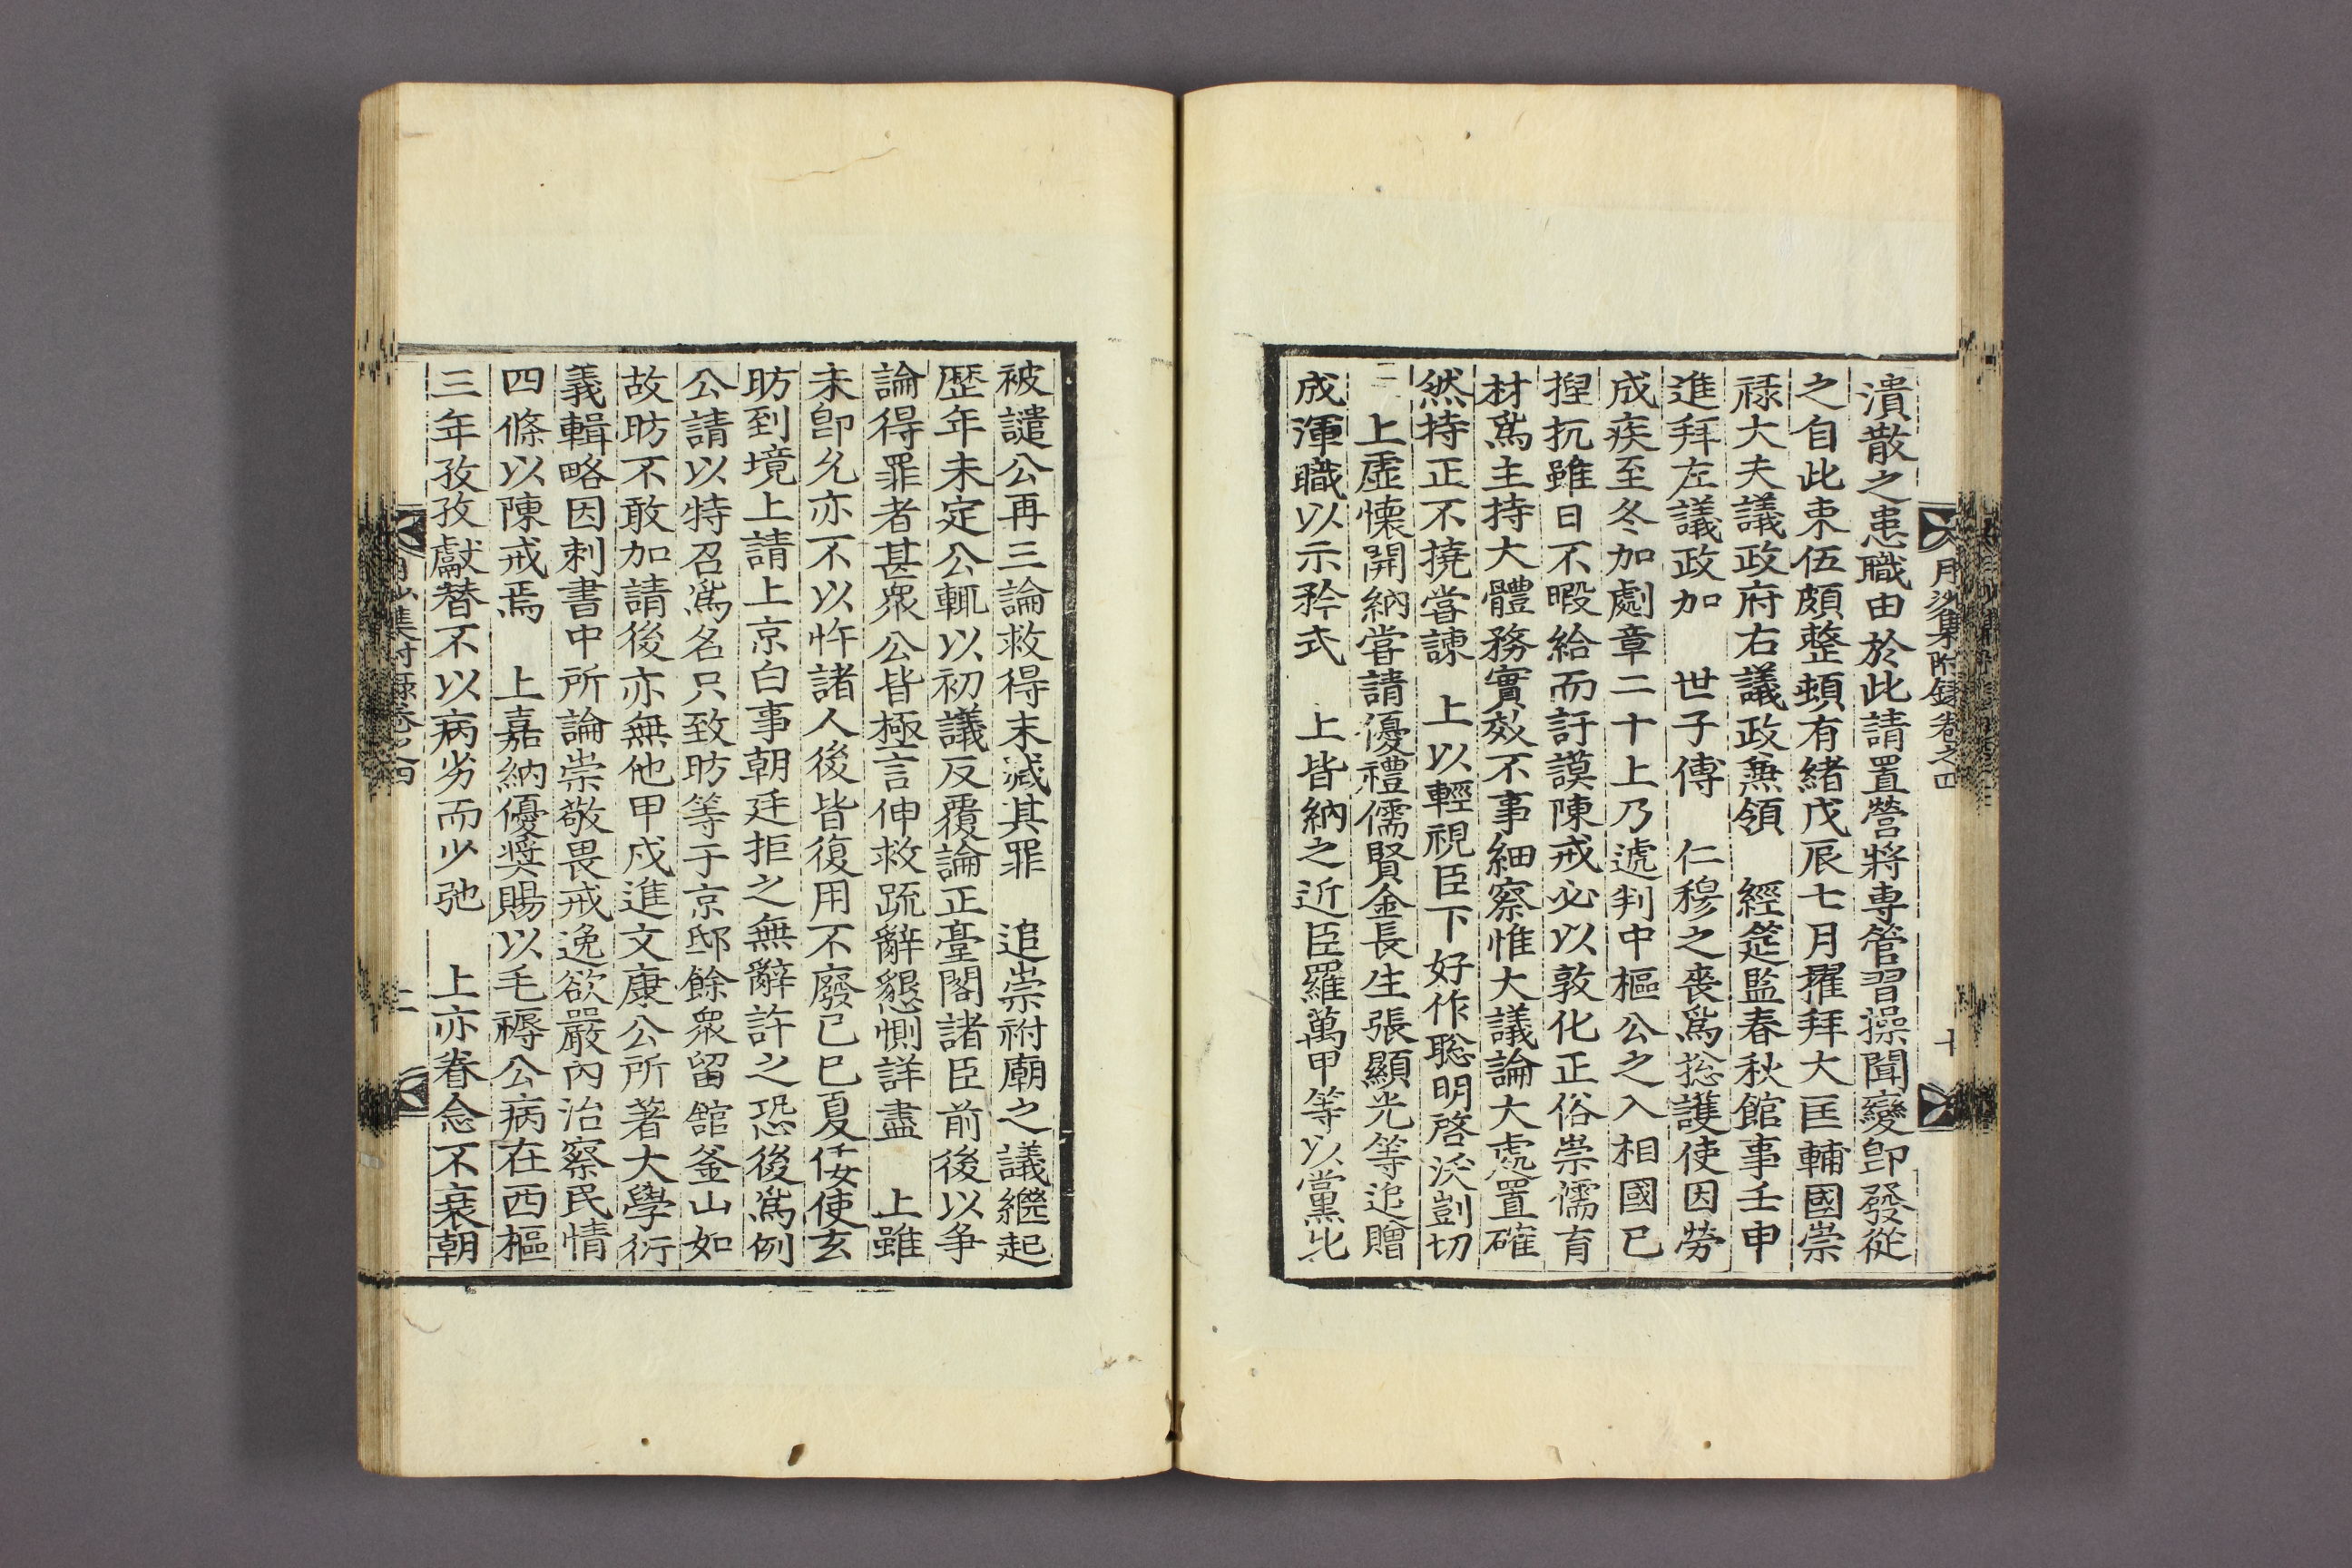 月沙集附錄卷之四
十
潰散之患職由於此請置營將專管習操聞變卽發從
之自此束伍頗整頓有緖戊辰七月擢拜大匡輔國崇
祿大夫議政府右議政兼領　經筵監春秋館事壬申
進拜左議政加　世子傅　仁穆之喪爲捴護使因勞
成疾至冬加劇章二十上乃遞判中樞公之入相國已
揑扤雖日不暇給而訏謨陳戒必以敦化正俗崇儒育
材爲主持大體務實效不事細察惟大議論大處置確
然持正不撓嘗諫　上以輕視臣下好作聡明啓沃剴切
上虛懷開納嘗請優禮儒賢金長生張顯光等追贈
成渾職以示矜式　上皆納之近臣羅萬甲等以黨比
被譴公再三論救得末减其罪　追崇祔廟之議繼起
歷年未定公輒以初議反覆論正臺閣諸臣前後以爭
論得罪者甚衆公皆極言伸救疏辭懇惻詳盡　上雖
未卽允亦不以忤諸人後皆復用不廢己巳夏倭使玄
昉到境上請上京白事朝廷拒之無辭許之恐後爲例
公請以特召爲名只致昉等于京邸餘衆留舘釜山如
故昉不敢加請後亦無他甲戌進文康公所著大學衍
義輯略因刺書中所論崇敬畏戒逸欲嚴內治察民情
四條以陳戒焉　上嘉納優奬賜以毛褥公病在西樞
三年孜孜獻替不以病劣而少弛　上亦眷念不衰朝